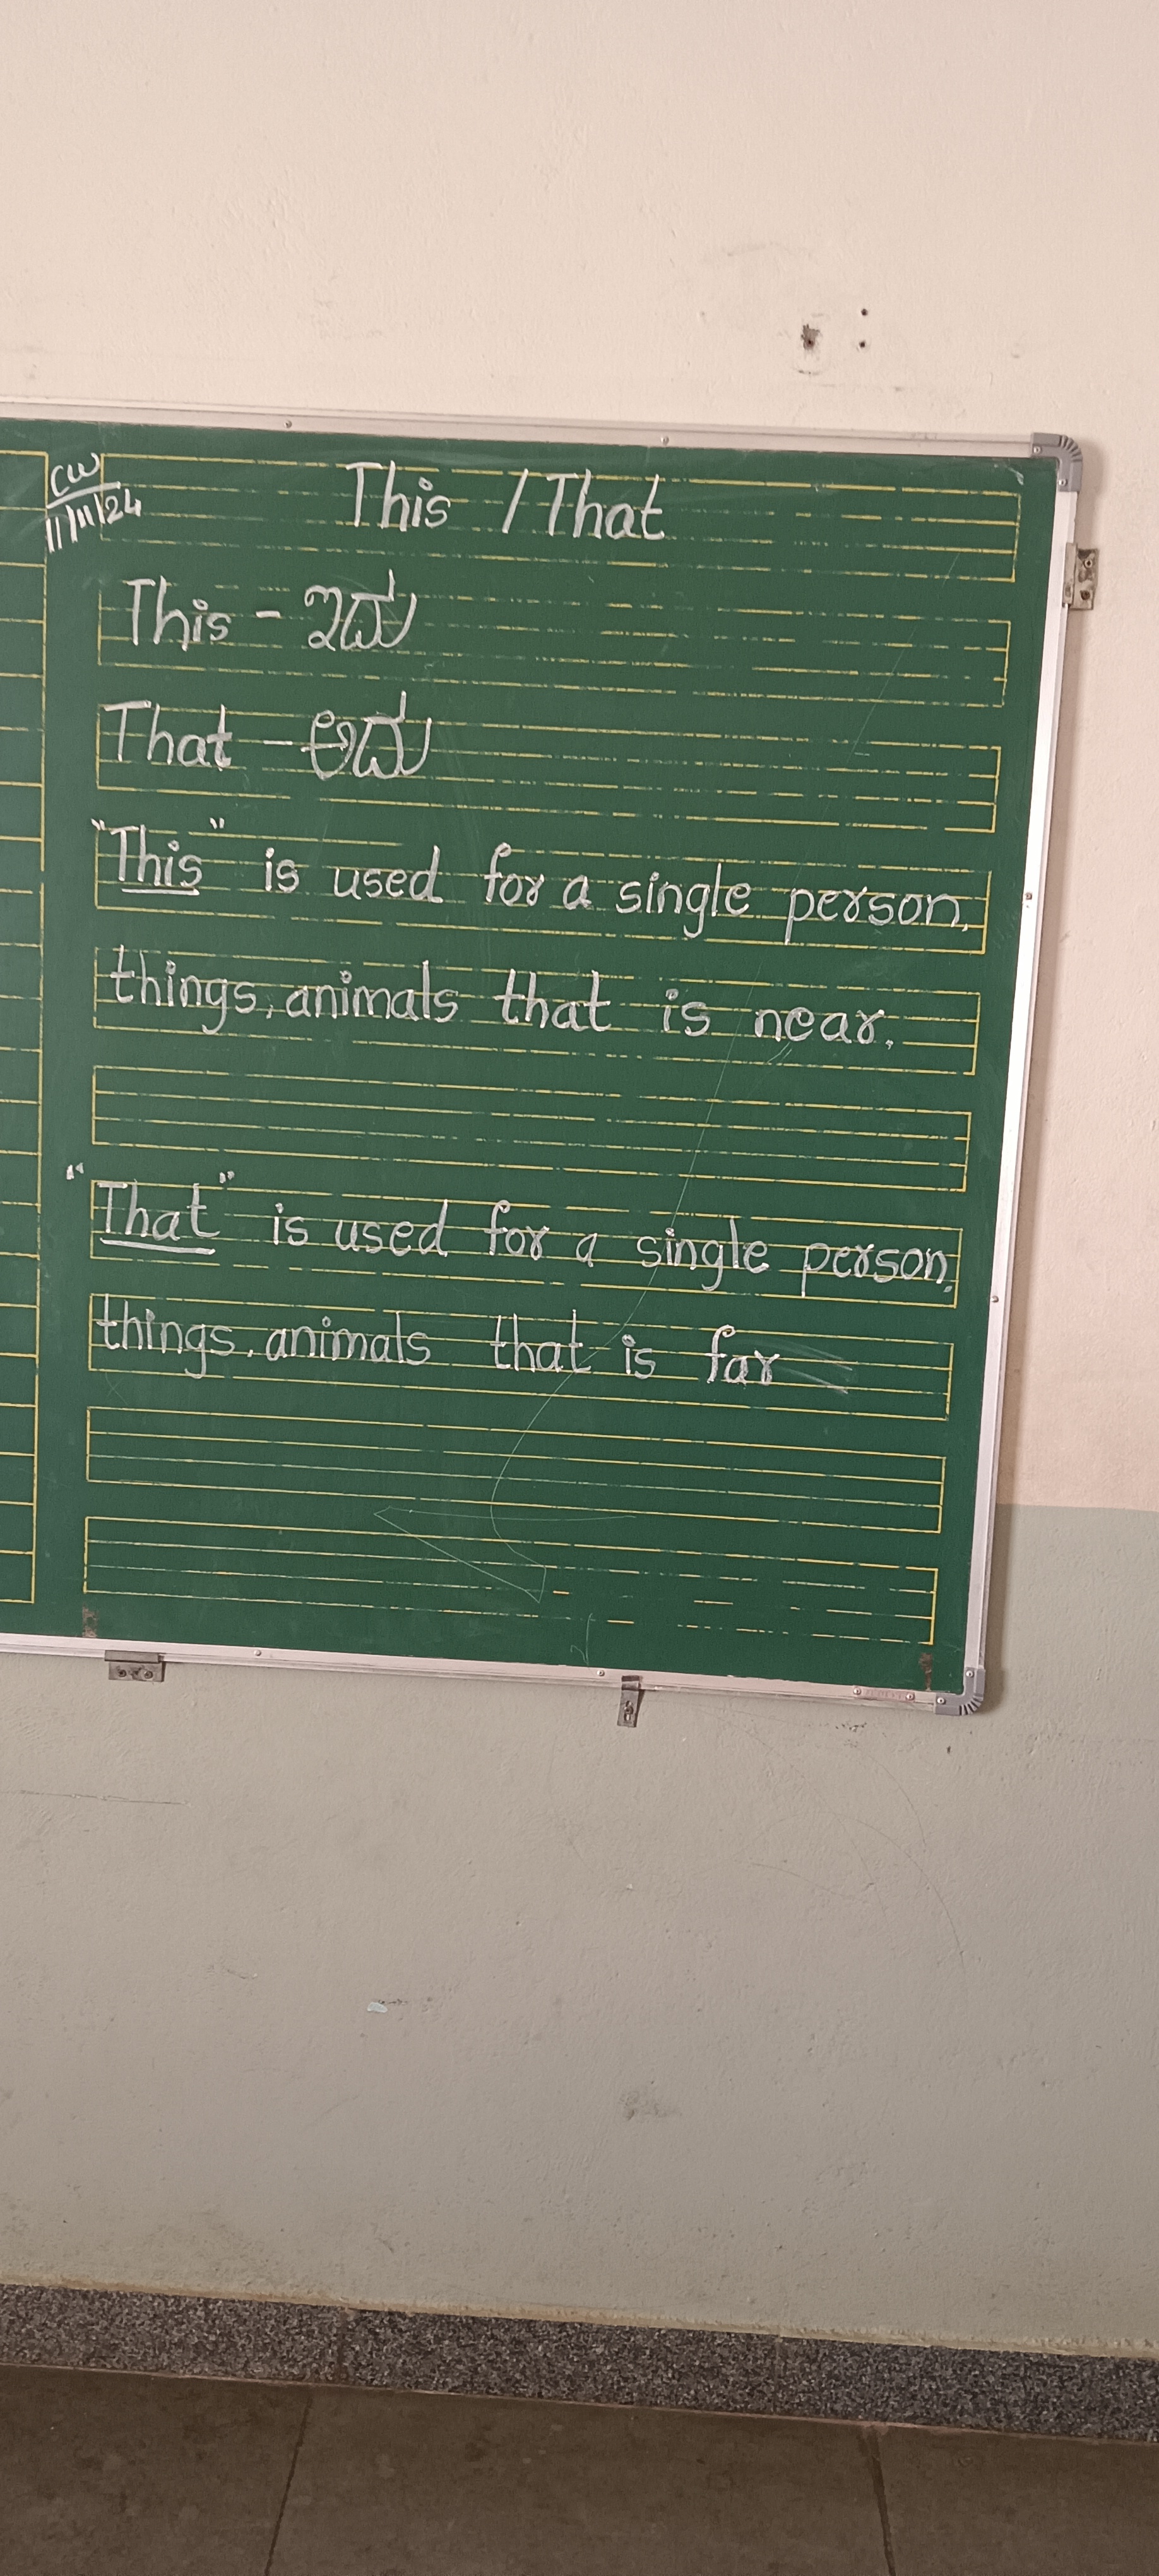 CW
11/11/24
This / That
This - ಇದು
That - ಅದು
"This" is used for a single person,
things, animals that is near.
"That" is used for a single person,
things, animals that is far